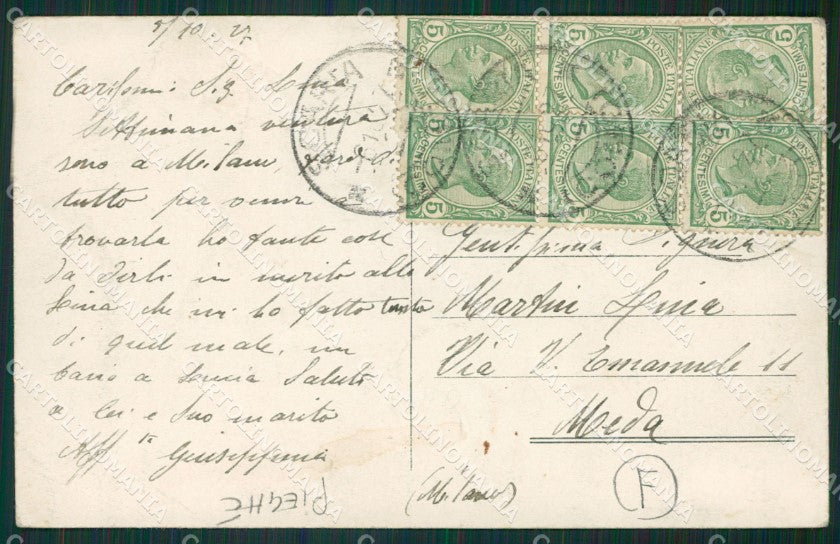 5/10 27
Cariss.ma Sig. Lina
Settimana ventura
sono a Milano, farò di
tutto per venire a
trovarla ho tante cose
da dirle in merito alla
Lina che mi ha fatto tanto
di quel male. un
bacio a Lucia Saluti
a lei e Suo marito
Aff.ta Giuseppina
PIEGHE
POSTE ITALIANE
CENTESIMI
5
POSTE ITALIANE
CENTESIMI
5
POSTE ITALIANE
CENTESIMI
5
POSTE ITALIANE
CENTESIMI
5
POSTE ITALIANE
CENTESIMI
5
POSTE ITALIANE
CENTESIMI
5
Gentilissima Signora
Martini Lina
Via V. Emanuele 11
Meda
(Milano)
F
CARTOLINOMANIA